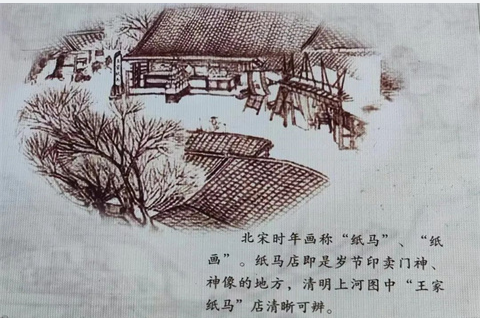 北宋时年画称“纸马”、“纸
画”。纸马店即是岁节印卖门神、
神像的地方，清明上河图中“王家
纸马”店清晰可辨。